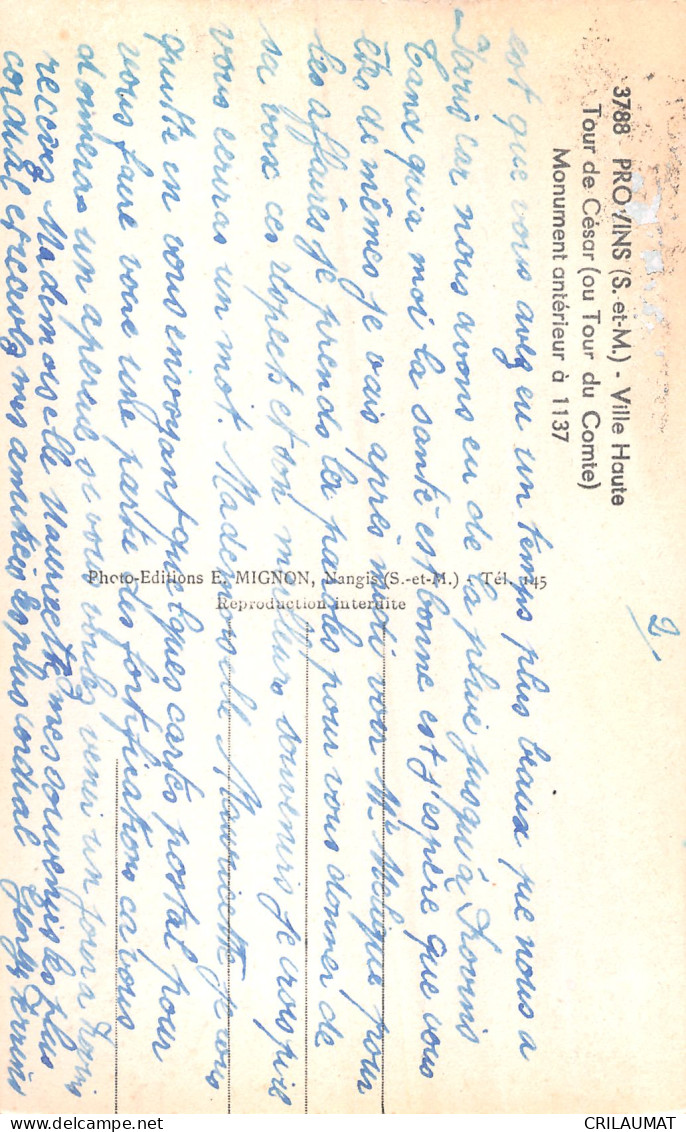 3788 PROVINS (S.-et-M.) - Ville Haute
Tour de César (ou Tour du Comte)
Monument antérieur à 1137
est que vous avez eu un temps plus beaux que nous a
Paris car nous avons eu de la pluie jusqu'à Provins
Tand qu'a moi la santé est bonne est j'espère que vous
êtes de mêmes je vais après midi voir Mr pour
les affaires je prends la paroles pour vous donner de
sa voix ces respects et son meilleurs souvenirs je crois qu'il
vous ecriras un mot. Mademoiselle Mauricette je vous
quitte en vous envoyant quelques cartes postal pour
vous faire voire une partie des fortifications ca vous
donneras un apercue si vous voulez venir un jour a Provins
recevez Mademoiselle Mauricette mes souvenirs les plus
cordial et recevez mes amitiées les plus cordial
Photo-Editions E. MIGNON, Nangis (S.-et-M.) - Tél. 145
Reproduction interdite
2/
CRILAUMAT